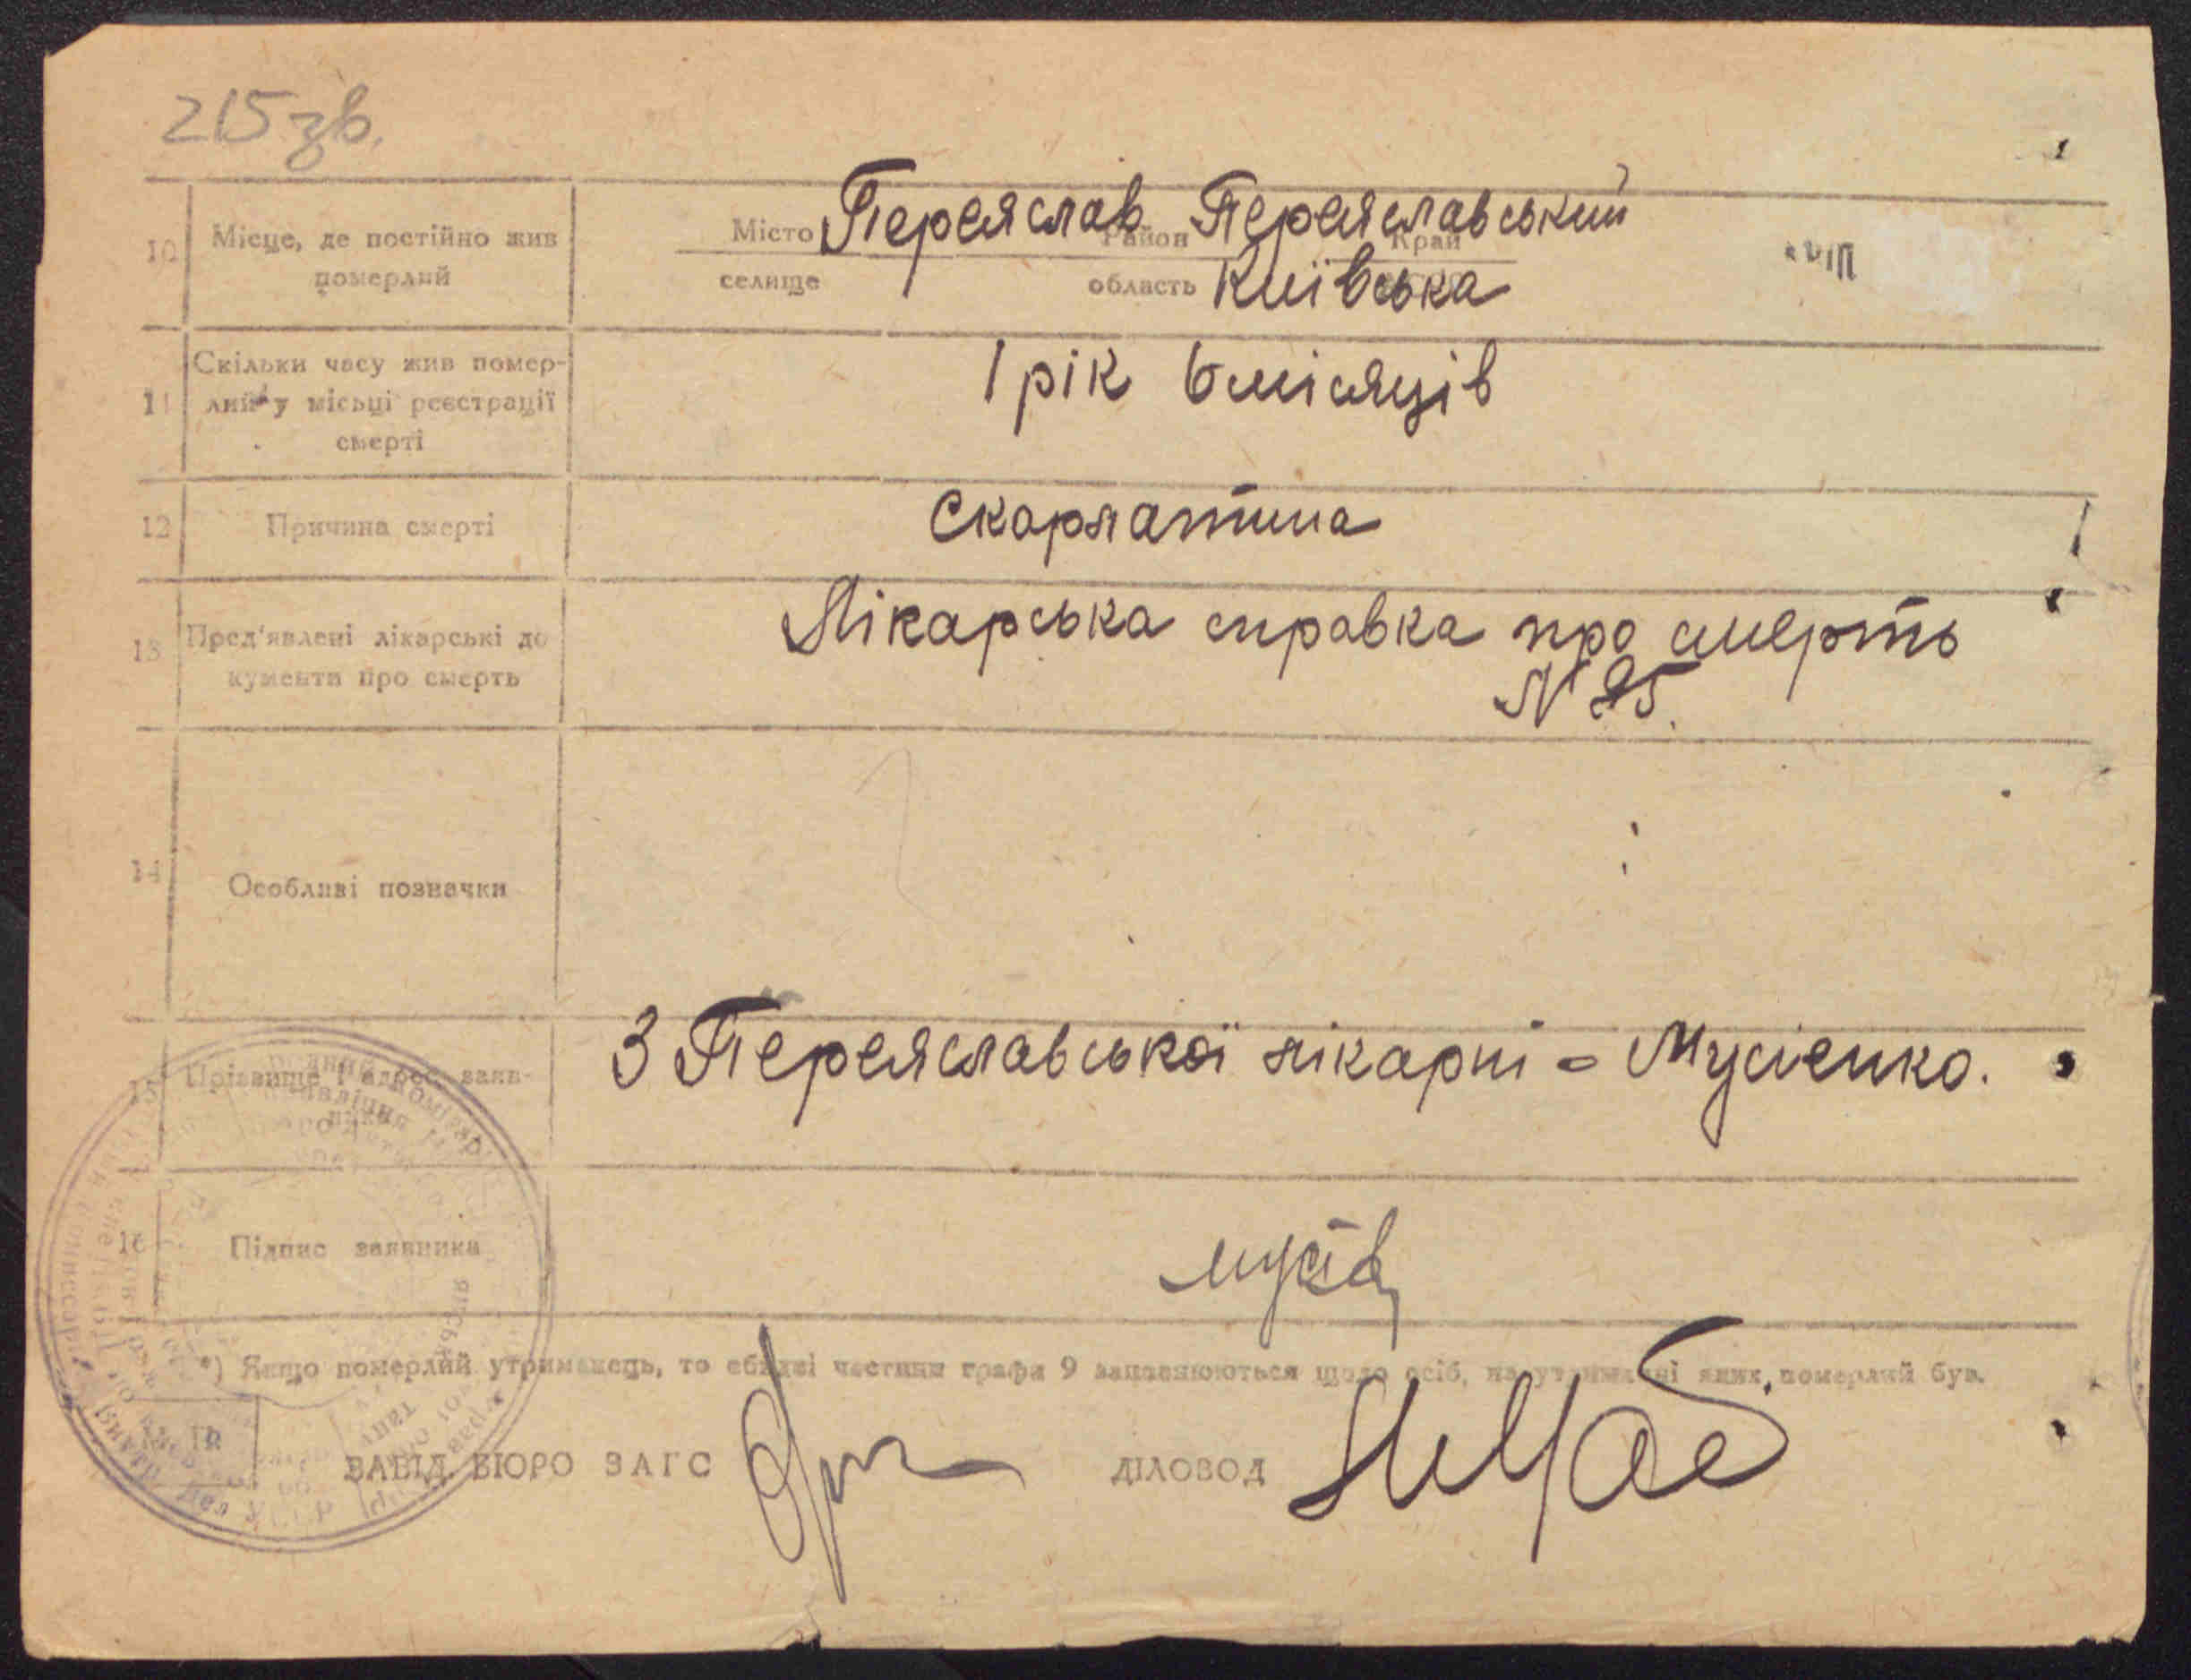 215 зв.
10 Місце, де постійно жив померлий
Місто Переяслав Район Переяславський Край
селище область Київська
11 Скільки часу жив помер-
лий у місьці реєстрації
смерті
1 рік 6 місяців
12 Причина смерті Скарлатина
13 Пред'явлені лікарські до
кументи про смерть
Лікарська справка про смерть
N 25.
14 Особливі позначки
15 Прізвище і адрес заяв-
ника
З Переяславської лікарні - Мусієнко.
16 Підпис заявника
*) Якщо померлий утриманець, то обидві частини графи 9 заповнюються щодо осіб, на утриманні яких померлий був.
ЗАВІД. БЮРО ЗАГС ДІЛОВОД